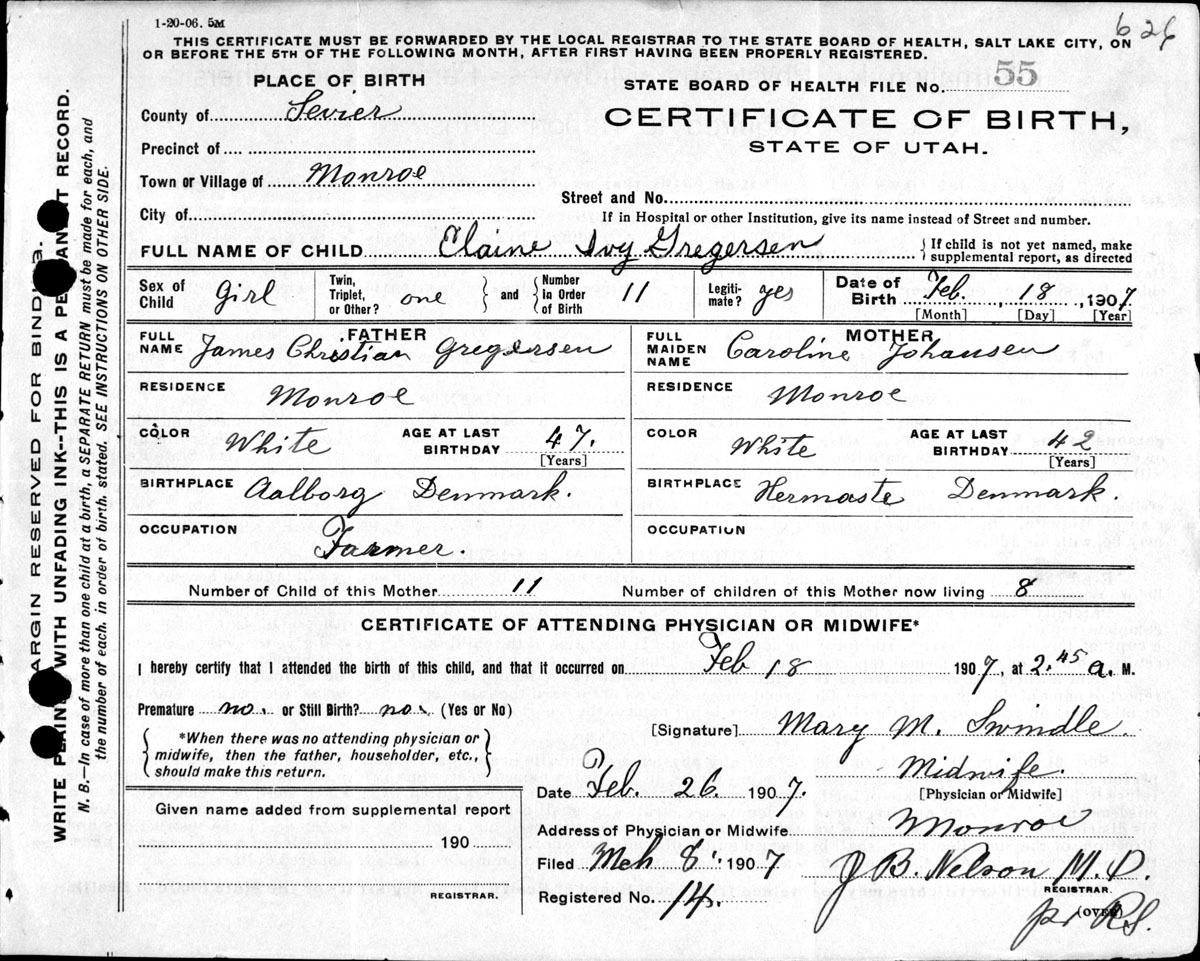 1-20-06. 5M
626
THIS CERTIFICATE MUST BE FORWARDED BY THE LOCAL REGISTRAR TO THE STATE BOARD OF HEALTH, SALT LAKE CITY, ON
OR BEFORE THE 5TH OF THE FOLLOWING MONTH, AFTER FIRST HAVING BEEN PROPERLY REGISTERED.
PLACE OF BIRTH
County of Sevier
Precinct of
Town or Village of Monroe
City of
STATE BOARD OF HEALTH FILE No. 55
CERTIFICATE OF BIRTH,
STATE OF UTAH.
Street and No.
If in Hospital or other Institution, give its name instead of Street and number.
FULL NAME OF CHILD Elaine Ivy Gregersen
{If child is not yet named, make
supplemental report, as directed
Sex of Child Girl
Twin, Triplet, or Other? one
and Number in Order of Birth 11
Legiti-mate? yes
Date of Birth Feb. 18, 1907
[Month] [Day] [Year]
FATHER
FULL NAME James Christian Gregersen
RESIDENCE
Monroe
COLOR White AGE AT LAST BIRTHDAY 47.
[Years]
BIRTHPLACE Aalborg Denmark.
OCCUPATION
Farmer.
MOTHER
FULL MAIDEN NAME Caroline Johansen
RESIDENCE
Monroe
COLOR White AGE AT LAST BIRTHDAY 42
[Years]
BIRTHPLACE Hermaste Denmark.
OCCUPATION
Number of Child of this Mother 11 Number of children of this Mother now living 8
CERTIFICATE OF ATTENDING PHYSICIAN OR MIDWIFE*
I hereby certify that I attended the birth of this child, and that it occurred on Feb 18 1907, at 2.45 a. M.
Premature no. or Still Birth? no. (Yes or No)
*When there was no attending physician or
midwife, then the father, householder, etc.,
should make this return.
Given name added from supplemental report
190
REGISTRAR.
[Signature] Mary M. Swindle.
Midwife.
[Physician or Midwife]
Date Feb. 26. 1907.
Address of Physician or Midwife Monroe
Filed Mch 8. 1907
J B. Nelson M.D.
REGISTRAR.
Registered No. 14.
(OVER)
pr RS.
MARGIN RESERVED FOR BINDING.
WRITE PLAINLY WITH UNFADING INK--THIS IS A PERMANENT RECORD.
N. B.—In case of more than one child at a birth, a SEPARATE RETURN must be made for each, and
the number of each, in order of birth, stated. SEE INSTRUCTIONS ON OTHER SIDE.